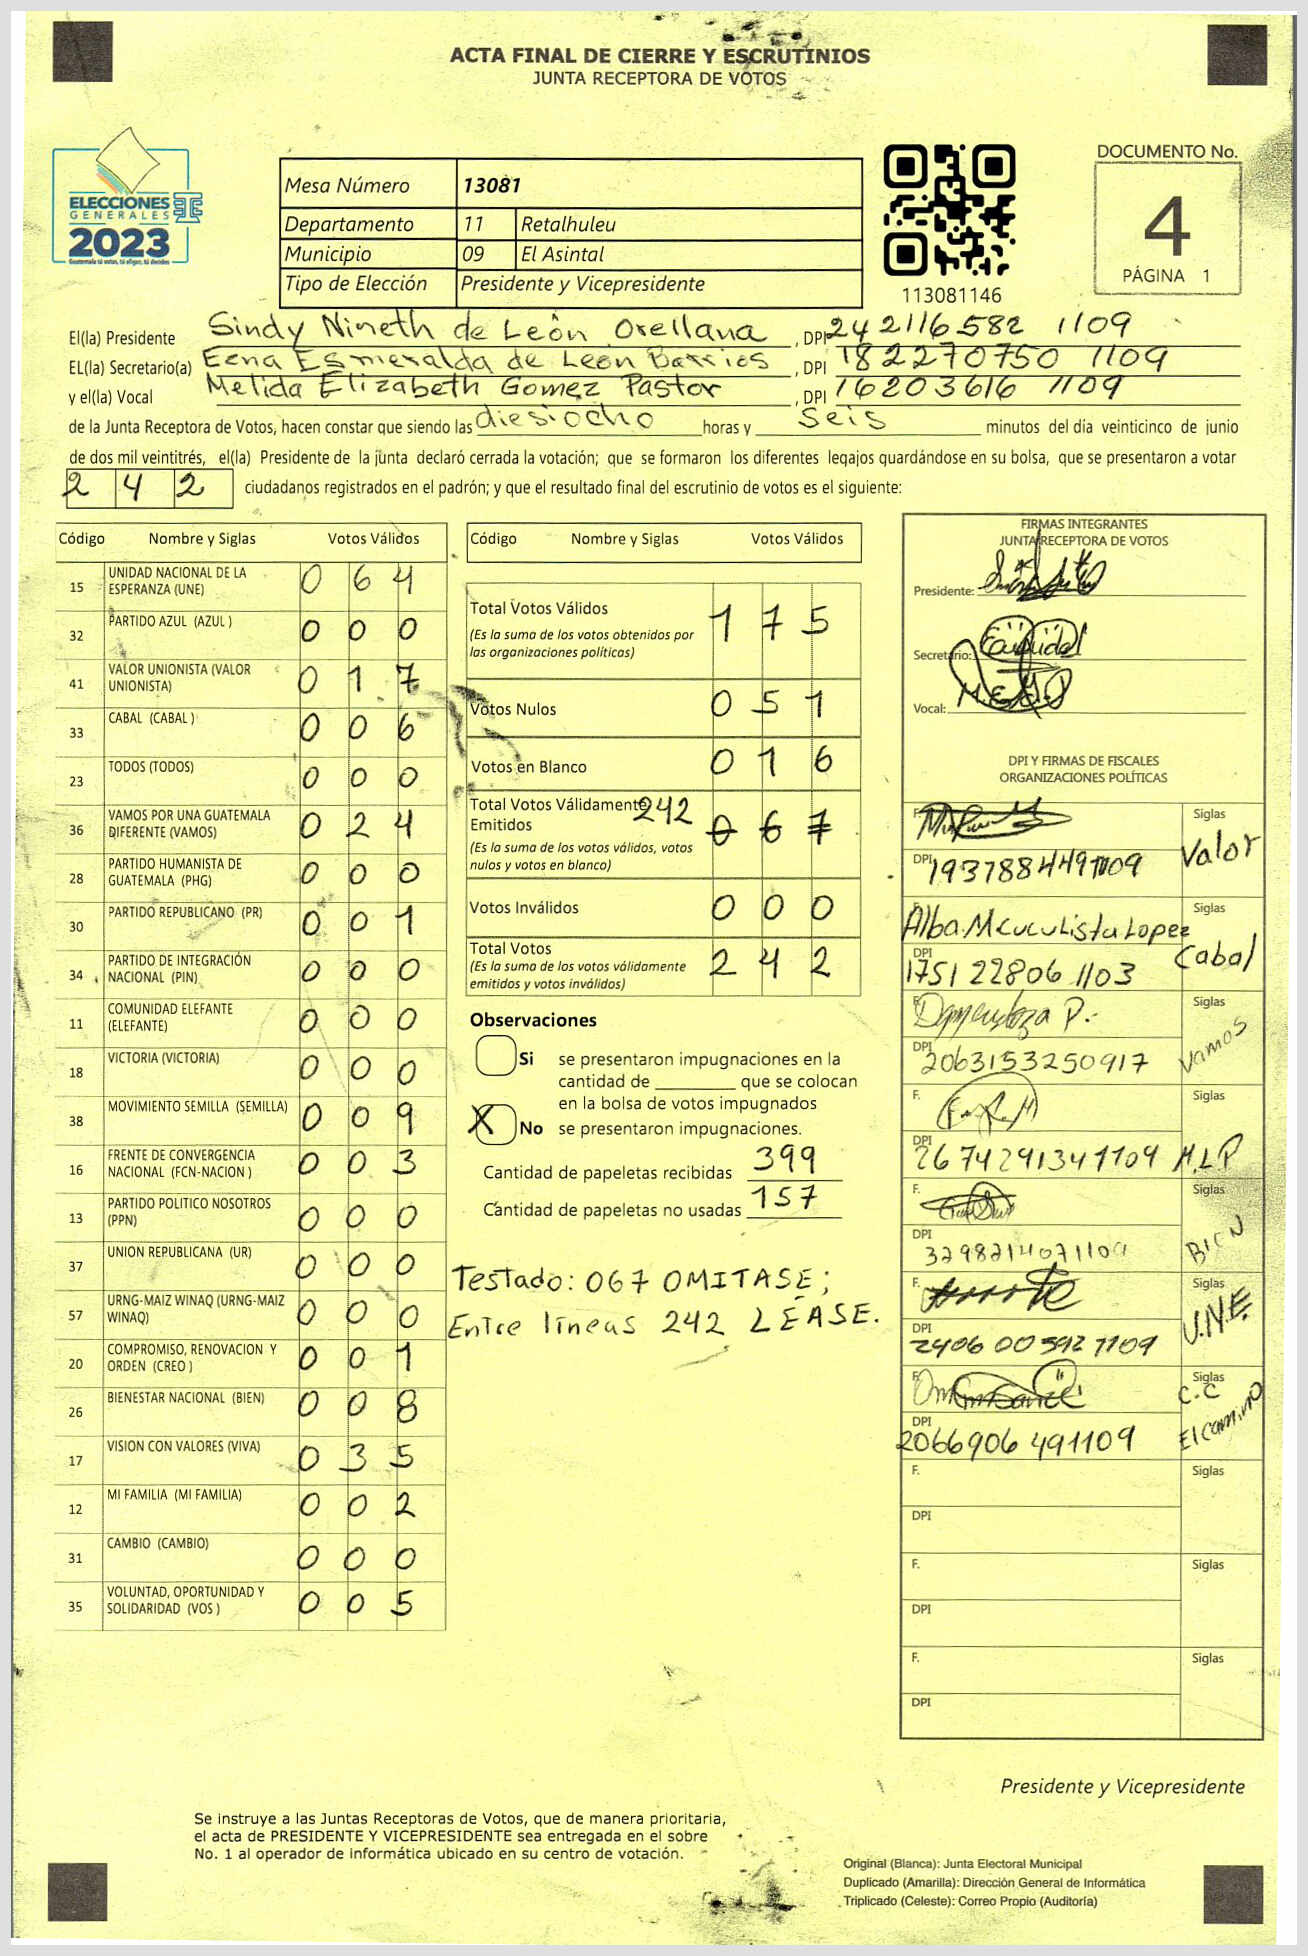 ACTA FINAL DE CIERRE Y ESCRUTINIOS
JUNTA RECEPTORA DE VOTOS
ELECCIONES
GENERALES
2023
Guatemala tú votas, tú eliges, tú decides
Mesa Número 13081
Departamento 11 Retalhuleu
Municipio 09 El Asintal
Tipo de Elección Presidente y Vicepresidente
113081146
DOCUMENTO No.
4
PÁGINA 1
El(la) Presidente Sindy Nineth de León Orellana, DPI 242116582 1109
EL(la) Secretario(a) Edna Esmeralda de León Barrios, DPI 182270750 1109
y el(la) Vocal Melida Elizabeth Gomez Pastor, DPI 16203616 1109
de la Junta Receptora de Votos, hacen constar que siendo las diesiocho horas y seis minutos del día veinticinco de junio
de dos mil veintitrés, el(la) Presidente de la junta declaró cerrada la votación; que se formaron los diferentes legajos quardándose en su bolsa, que se presentaron a votar
2 4 2 ciudadanos registrados en el padrón; y que el resultado final del escrutinio de votos es el siguiente:
Código Nombre y Siglas Votos Válidos
15 UNIDAD NACIONAL DE LA ESPERANZA (UNE) 0 6 4
32 PARTIDO AZUL (AZUL ) 0 0 0
41 VALOR UNIONISTA (VALOR UNIONISTA) 0 1 7
33 CABAL (CABAL ) 0 0 6
23 TODOS (TODOS) 0 0 0
36 VAMOS POR UNA GUATEMALA DIFERENTE (VAMOS) 0 2 4
28 PARTIDO HUMANISTA DE GUATEMALA (PHG) 0 0 0
30 PARTIDO REPUBLICANO (PR) 0 0 1
34 PARTIDO DE INTEGRACIÓN NACIONAL (PIN) 0 0 0
11 COMUNIDAD ELEFANTE (ELEFANTE) 0 0 0
18 VICTORIA (VICTORIA) 0 0 0
38 MOVIMIENTO SEMILLA (SEMILLA) 0 0 9
16 FRENTE DE CONVERGENCIA NACIONAL (FCN-NACION ) 0 0 3
13 PARTIDO POLITICO NOSOTROS (PPN) 0 0 0
37 UNION REPUBLICANA (UR) 0 0 0
57 URNG-MAIZ WINAQ (URNG-MAIZ WINAQ) 0 0 0
20 COMPROMISO, RENOVACION Y ORDEN (CREO ) 0 0 1
26 BIENESTAR NACIONAL (BIEN) 0 0 8
17 VISION CON VALORES (VIVA) 0 3 5
12 MI FAMILIA (MI FAMILIA) 0 0 2
31 CAMBIO (CAMBIO) 0 0 0
35 VOLUNTAD, OPORTUNIDAD Y SOLIDARIDAD (VOS ) 0 0 5
Código Nombre y Siglas Votos Válidos
Total Votos Válidos 1 7 5
(Es la suma de los votos obtenidos por
las organizaciones políticas)
Votos Nulos 0 5 1
Votos en Blanco 0 1 6
Total Votos Válidamente 242
Emitidos 0 6 7
(Es la suma de los votos válidos, votos
nulos y votos en blanco)
Votos Inválidos 0 0 0
Total Votos 2 4 2
(Es la suma de los votos válidamente
emitidos y votos inválidos)
Observaciones
Si se presentaron impugnaciones en la
cantidad de ________ que se colocan
en la bolsa de votos impugnados
X No se presentaron impugnaciones.
Cantidad de papeletas recibidas 399
Cantidad de papeletas no usadas 157
Testado: 067 OMITASE;
Entre líneas 242 LÉASE.
FIRMAS INTEGRANTES
JUNTA RECEPTORA DE VOTOS
Presidente:
Secretario:
Vocal:
DPI Y FIRMAS DE FISCALES
ORGANIZACIONES POLÍTICAS
F. Siglas
DPI Valor
F. Siglas
DPI 1751 22806 1103 Cabal
F. Siglas
DPI 2063153250917 Vamos
F. Siglas
DPI 2674291341109 M.L.P
F. Siglas
DPI 3298214071109 BIEN
F. Siglas
DPI 2406 00592 1109 U.N.E
F. Siglas
DPI 2066906 491109 C.C El camino
F. Siglas
DPI
F. Siglas
DPI
F. Siglas
DPI
Presidente y Vicepresidente
Se instruye a las Juntas Receptoras de Votos, que de manera prioritaria,
el acta de PRESIDENTE Y VICEPRESIDENTE sea entregada en el sobre
No. 1 al operador de informática ubicado en su centro de votación.
Original (Blanca): Junta Electoral Municipal
Duplicado (Amarilla): Dirección General de Informática
Triplicado (Celeste): Correo Propio (Auditoría)